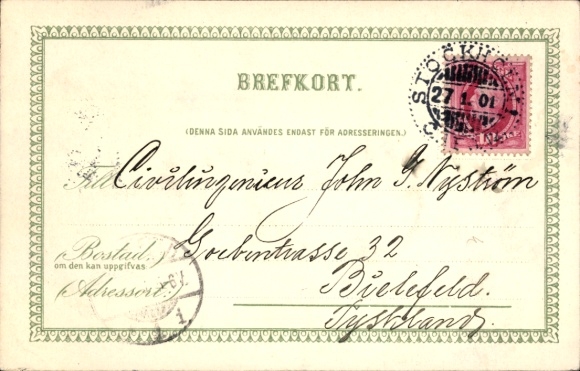 BREFKORT.
STOCKHOLM 1
27 1 01
(DENNA SIDA ANVÄNDES ENDAST FÖR ADRESSERINGEN.)
Till Civilingenieur John G. Nyström
(Bostad.) Goebenstrasse 32
om den kan uppgifvas
(Adressort.) Bielefeld.
Tyskland.